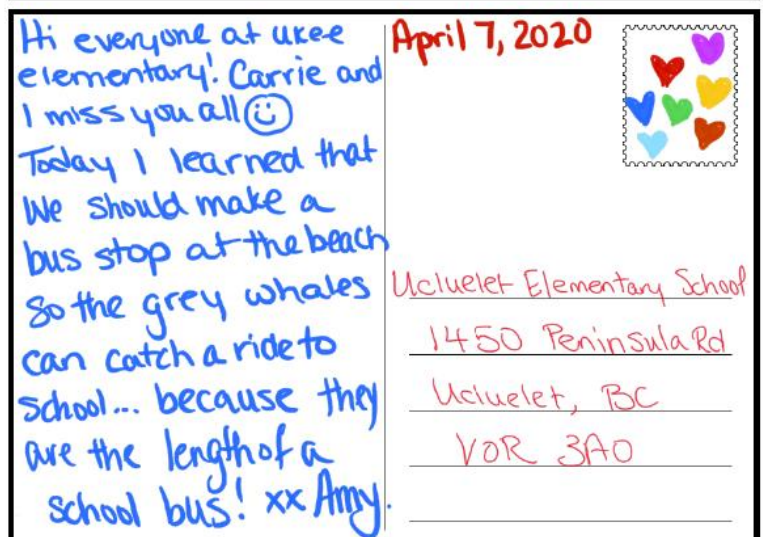 Hi everyone at ukee
elementary! Carrie and
I miss you all
Today I learned that
we should make a
bus stop at the beach
so the grey whales
can catch a ride to
school... because they
are the length of a
school bus! xx Amy.
April 7, 2020
Ucluelet Elementary School
1450 Peninsula Rd
Ucluelet, BC
V0R 3A0